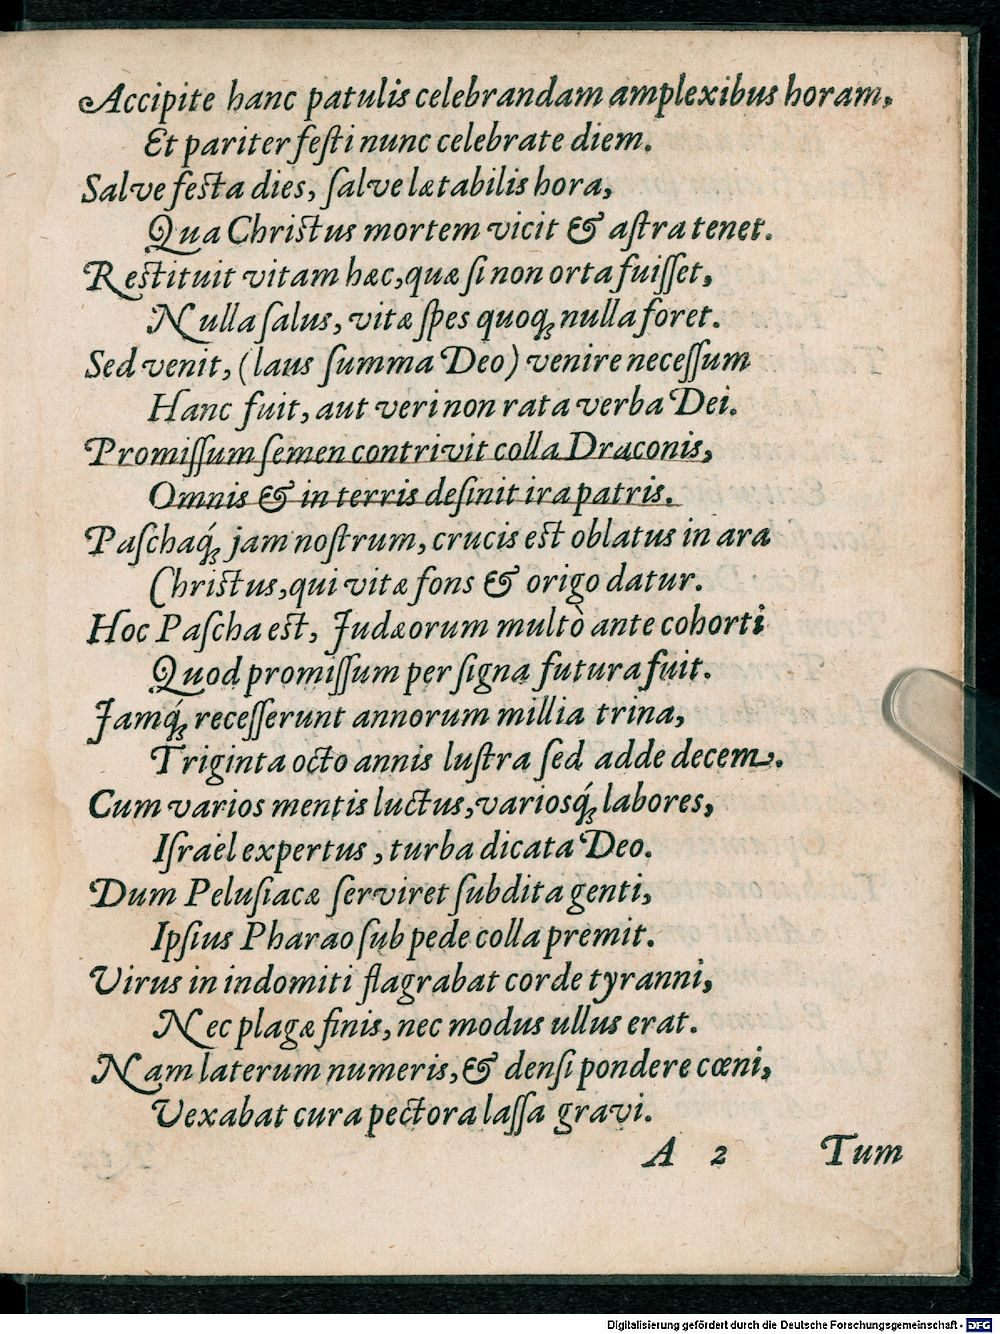 Accipite hanc patulis celebrandam amplexibus horam,
Et pariter feſti nunc celebrate diem.
Salve feſta dies, ſalve lætabilis hora,
Qua Chriſtus mortem vicit & aſtra tenet.
Reſtituit vitam hæc, quæ ſi non orta fuiſſet,
Nulla ſalus, vitæ ſpes quoq; nulla foret.
Sed venit, (laus ſumma Deo) venire neceſſum
Hanc fuit, aut veri non rata verba Dei.
Promiſſum ſemen contrivit colla Draconis,
Omnis & in terris deſinit ira patris.
Paſchaq́; jam noſtrum, crucis eſt oblatus in ara
Chriſtus, qui vitæ fons & origo datur.
Hoc Paſcha eſt, Judæorum multò ante cohorti
Quod promiſſum per ſigna futura fuit.
Jamq́; receſſerunt annorum millia trina,
Triginta octo annis luſtra ſed adde decem.
Cum varios mentis luctus, variosq́; labores,
Iſrael expertus, turba dicata Deo.
Dum Peluſiacæ ſerviret ſubdita genti,
Ipſius Pharao ſub pede colla premit.
Virus in indomiti flagrabat corde tyranni,
Nec plagæ finis, nec modus ullus erat.
Nam laterum numeris, & denſi pondere cœni,
Vexabat cura pectora laſſa gravi.
A 2 Tum
Digitalisierung gefördert durch die Deutsche Forschungsgemeinschaft - DFG